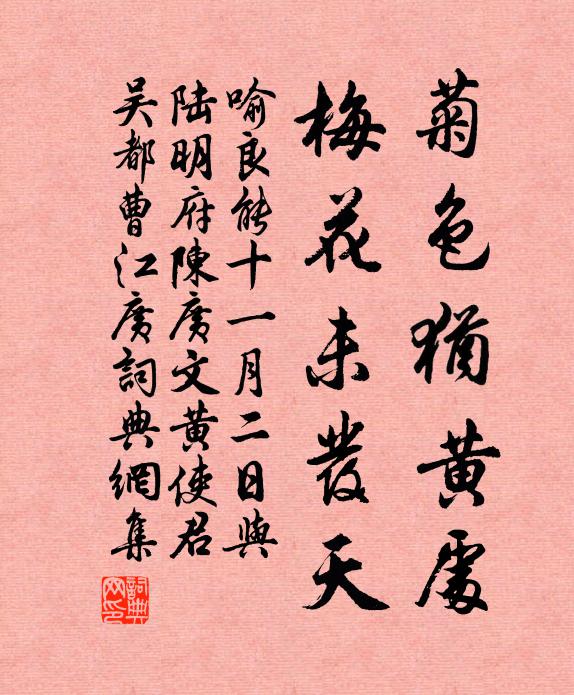 菊色猶黄處
梅花未發天
喻良能十一月二日與
陸明府陳廣文黄使君
吴都曹江廣詞典網集
詞典網印